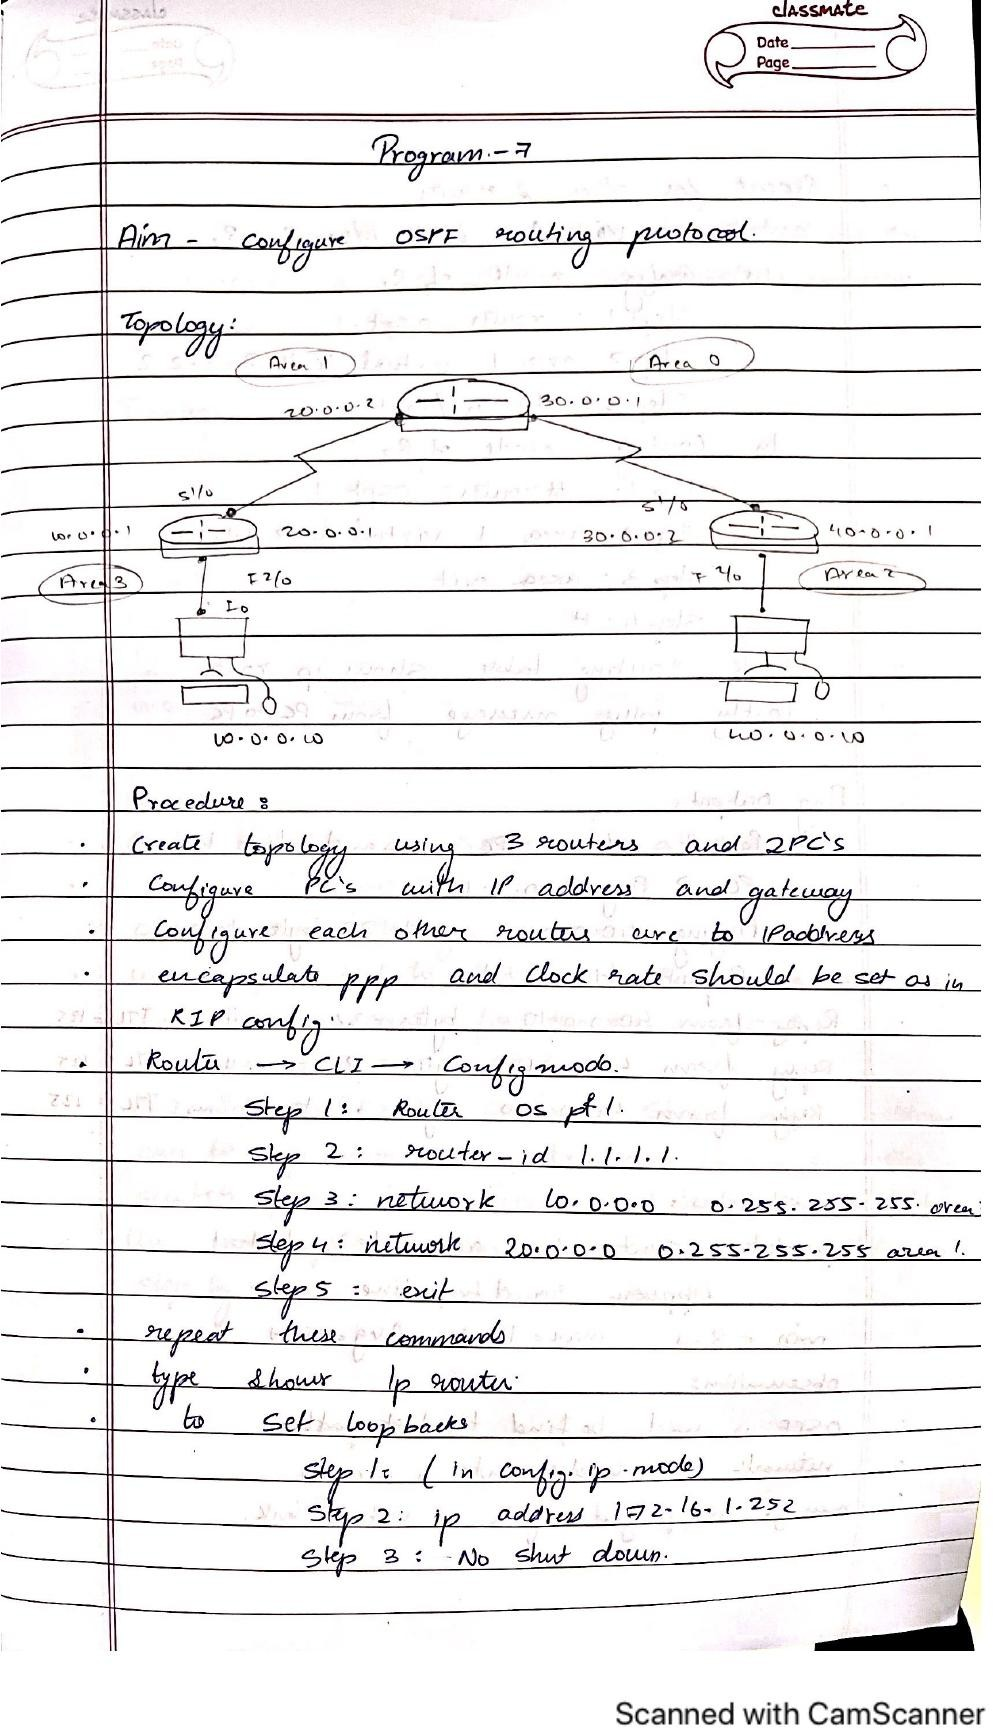 classmate
Date
Page
Program - 7
Aim - configure OSPF routing protocol.
Topology:
Area 1
Area 0
20.0.0.2
30.0.0.1
S1/0
S1/0
10.0.0.1
20.0.0.1
30.0.0.2
40.0.0.1
Area 3
F2/0
F2/0
Area 2
10.0.0.10
40.0.0.10
Procedure :
. Create topology using 3 routers and 2PC's
. Configure PC's with IP address and gateway
. Configure each other routers are to IPaddress
. encapsulate ppp and Clock rate should be set as in
RIP config.
. Router → CLI → Config mode.
Step 1: Router os pf 1.
Step 2: router-id 1.1.1.1.
Step 3: network 10.0.0.0 0.255.255.255. area
Step 4: network 20.0.0.0 0.255.255.255 area 1.
Step 5: exit
. repeat these commands
. type shows Ip router.
. to set loopbacks
Step 1: (in config. ip. mode)
Step 2: ip address 172.16.1.252
Step 3: No shut down.
Scanned with CamScanner